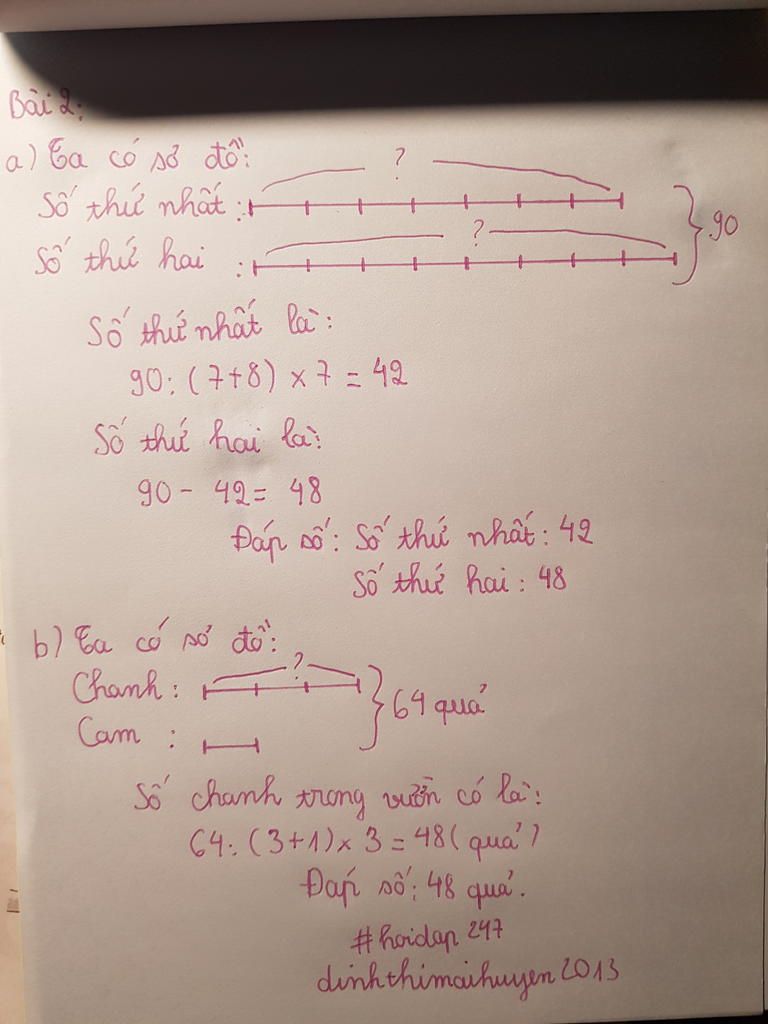 Bài 2:
a) Ta có sơ đồ:
?
Số thứ nhất:
?
Số thứ hai :
90
Số thứ nhất là:
90: (7+8) × 7 = 42
Số thứ hai là:
90 - 42 = 48
Đáp số: Số thứ nhất: 42
Số thứ hai: 48
b) Ta có sơ đồ:
?
Chanh:
64 quả
Cam :
Số chanh trong vườn có là:
64: (3+1) × 3 = 48 (quả)
Đáp số: 48 quả.
#hoidap 247
dinhthimaihuyen2013